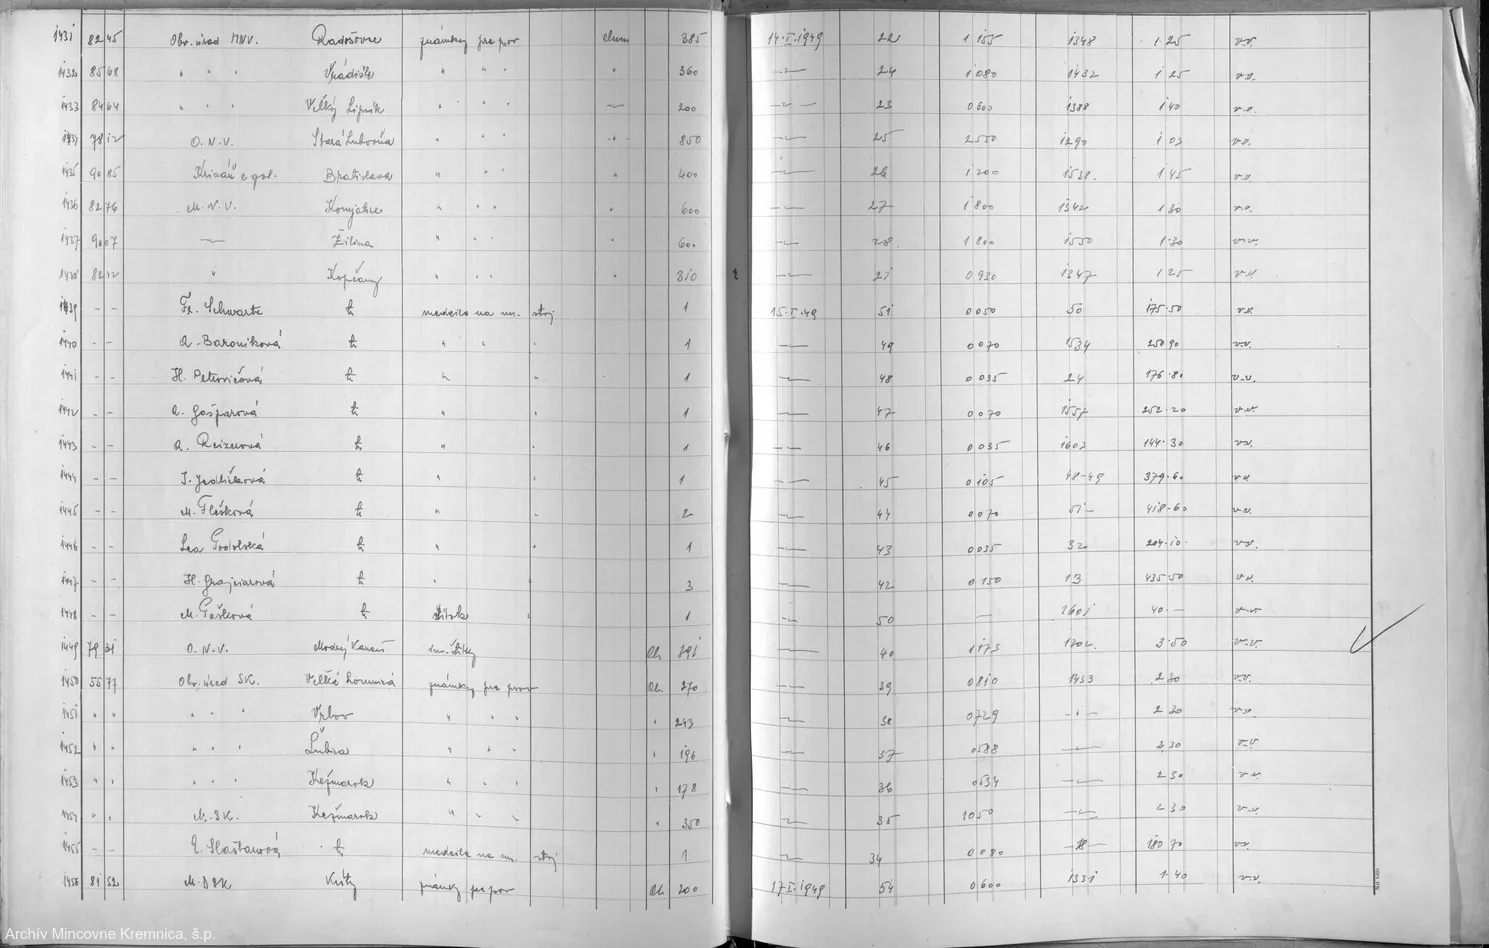 1431 82 45 Obv. úrad MNV. Radošovce známky pre psov chem 385 14.I.1949 22 1 155 1348 1 25 v.v.
1432 85 68 " " " Vrádište " " " " 360 —"— 24 1 080 1432 1 25 v.v.
1433 84 64 " " " Veľký Lipník " " " —"— 200 —"— 23 0 600 1388 1 40 v.v.
1434 78 12 O.N.V. Stará Ľubovňa " " " —"— 850 —"— 25 2 550 1290 1 03 v.v.
1435 90 85 Kriváň e spol. Bratislava " " " " 400 —"— 26 1 200 1538. 1 45 v.v.
1436 82 76 M.N.V. Komjatice " " " " 600 —"— 27 1 800 1342 1 30 v.v.
1437 90 07 —"— Žilina " " " " 600 —"— 28. 1 800 1550 1.30 v.v.
1438 82 42 " Kopčany " " " " 310 —"— 21 0 930 1347 1.25 v.v.
1439 – – Fr. Schwartz tu medaila na um. stoj 1 15.I.49 51 0 050 50 175.50 v.v.
1440 – – A. Baroniková tu " " " 1 —"— 49 0 070 1534 250 90 v.v.
1441 – – H. Petrovičová tu " " 1 —"— 48 0 035 24 176.80 v.v.
1442 – – A. Gašparová tu " " 1 —"— 47 0 070 1557 252.20 v.v.
1443 – – A. Reiznerová tu " " 1 —"— 46 0 035 1603 144.30 v.v.
1444 – – J. Jedličková tu " " 1 —"— 45 0 105 48-49 379.60 v.v.
1445 – – M. Flešková tu " " 2 —"— 44 0 070 51– 418.60 v.v.
1446 – – Lea Podolská tu " " 1 —"— 43 0 035 32 204.10 v.v.
1447 – – H. Grajciarová tu " " 3 —"— 42 0 150 13 435.50 v.v.
1448 – – M. Pašková tu štítok " 1 —"— 50 — 1601 40.— v.v.
1449 79 31 O.N.V. Modrý Kameň inv. štítky Ch. 391 —"— 40 1 173 1302. 3.50 v.v.
1450 55 77 Obv. úrad SK. Veľká Lomnica známky pre psov Ch. 270 —"— 39 0810 1433 2 30 v.v.
1451 " " " " " Vrbov " " " " 243 —"— 38 0729 –"– 2 30 v.v.
1452 " " " " " Ľubica " " " " 196 —"— 37 0588 —"— 2 30 v.v.
1453 " " " " " Kežmarok " " " " 178 —"— 36 0534 —"— 2 30 v.v.
1454 " " M. SK. Kežmarok " " " " 350 —"— 35 1050 —"— 2 30 v.v.
1455 – – E. Slašťanová tu medaila na um. stoj 1 —"— 34 0 080 –18– 180 70 v.v.
1456 81 52 M.DSK Kúty známky pre psov Ch. 200 17.I.1949 54 0 600 1331 1.40 v.v.
Archív Mincovne Kremnica, š.p.